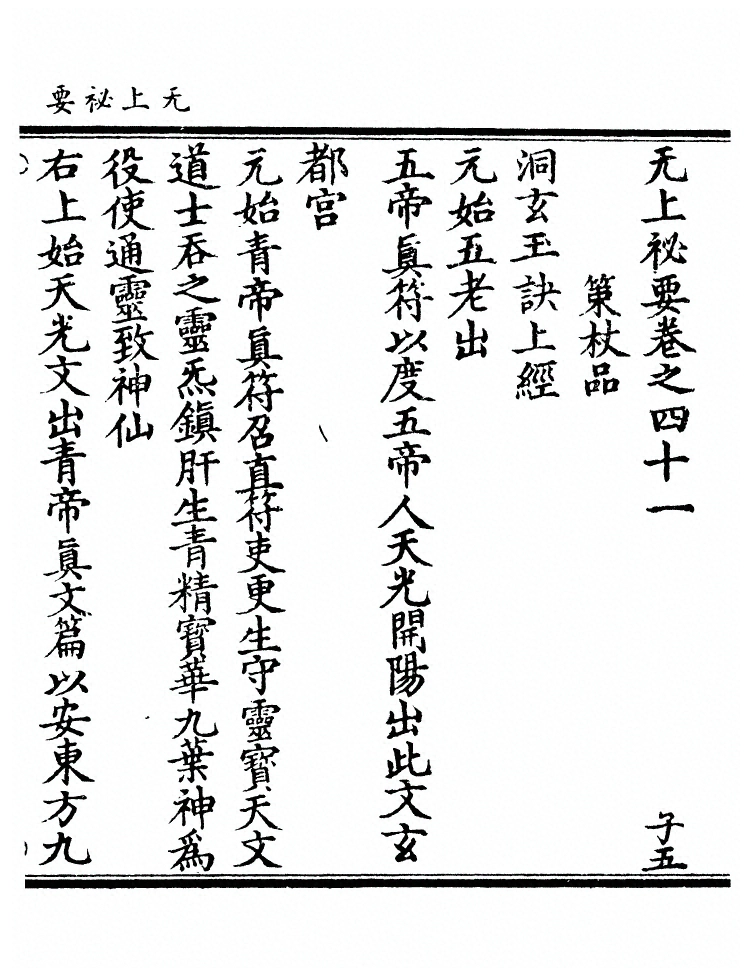 无上祕要
无上祕要卷之四十一 子五
策杖品
洞玄玉訣上經
元始五老出
五帝眞符以度五帝人天光開陽出此文玄
都宮
元始青帝眞符召直符吏更生守靈寶天文
道士吞之靈炁鎭肝生青精寶華九葉神爲
役使通靈致神仙
右上始天光文出青帝眞文篇以安東方九